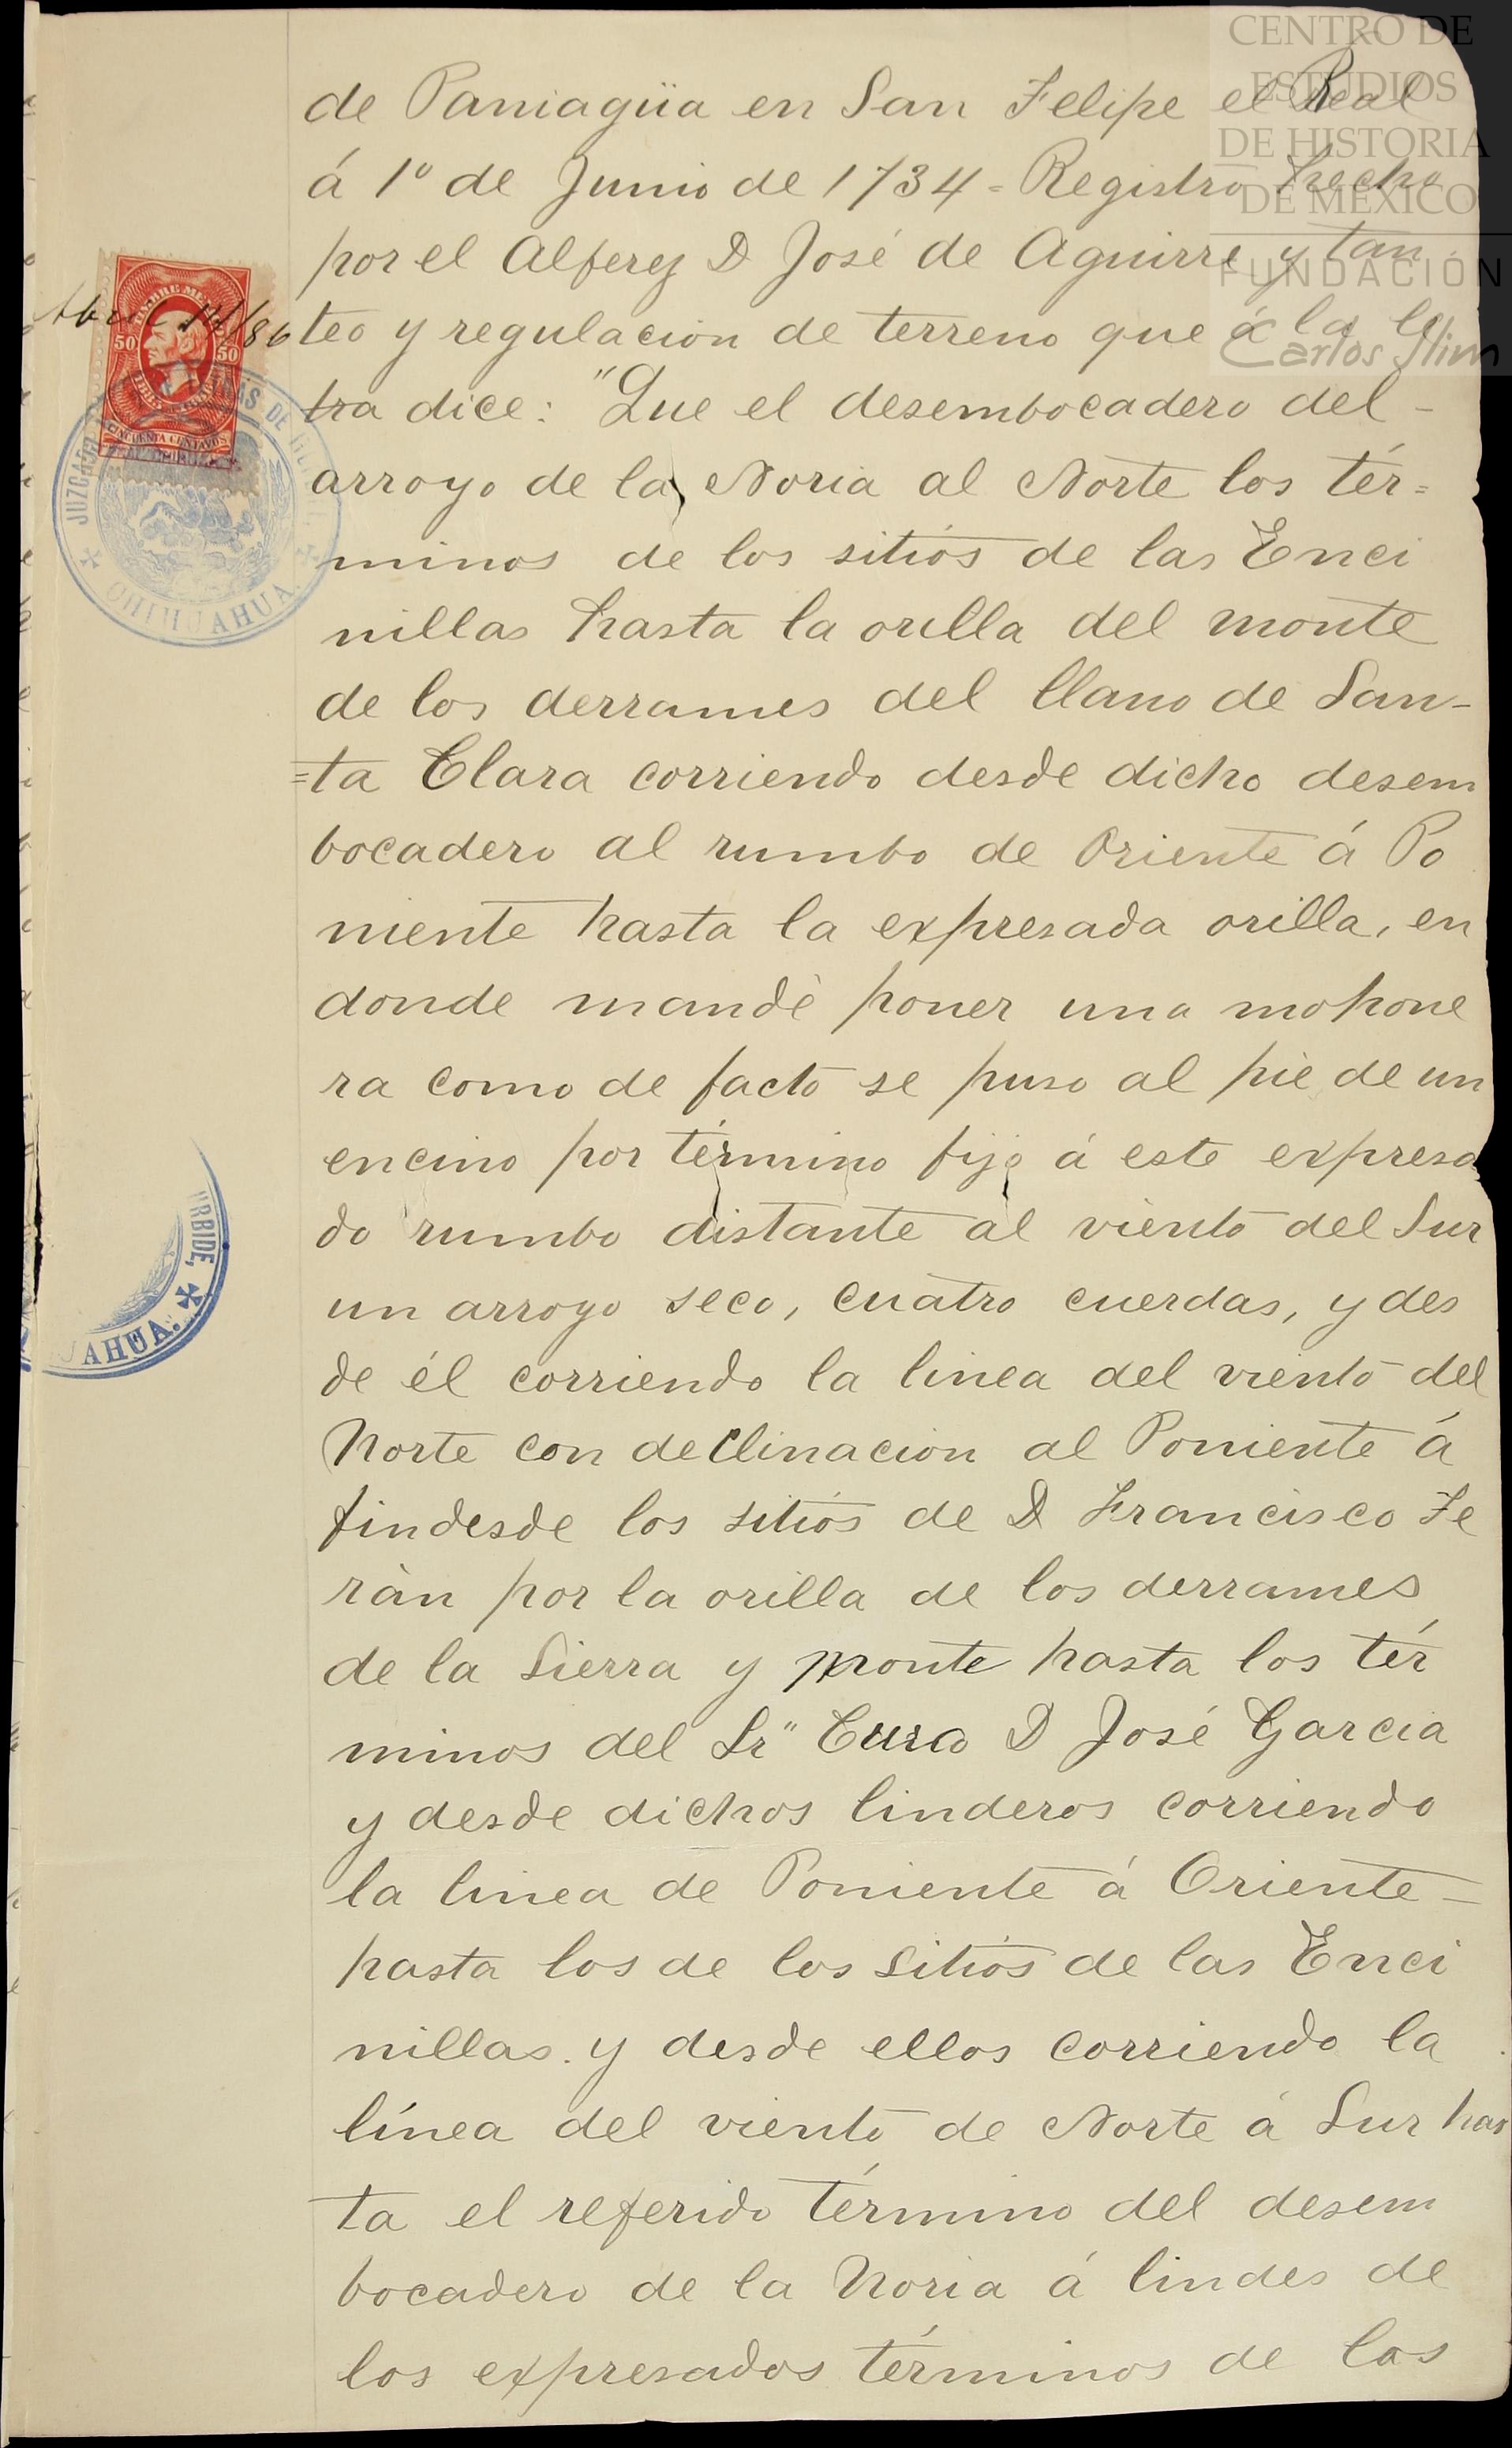 CENTRO DE
ESTUDIOS
DE HISTORIA
DE MÉXICO
FUNDACIÓN
Carlos Slim
de Paniagüa en San Felipe el Real
á 1º de Junio de 1734 = Registro hecho
por el Alferez D José de Aguirre y tan
teo y regulacion de terreno que á la le
tra dice: "Que el desembocadero del -
arroyo de la Noria al Norte los tér=
minos de los sitios de las Enci
nillas hasta la orilla del monte
de los derrames del llano de San-
=ta Clara corriendo desde dicho desem
bocadero al rumbo de Oriente á Po
niente hasta la expresada orilla, en
donde mandé poner una mohone
ra como de facto se puso al pié de un
encino por término fijo á este expresa
do rumbo distante al viento del Sur
un arroyo seco, cuatro cuerdas, y des
de él corriendo la linea del viento del
Norte con declinacion al Poniente á
findesde los sitios de D Francisco Fe
rán por la orilla de los derrames
de la Sierra y monte hasta los tér
minos del Sr" Cura D José Garcia
y desde dichos linderos corriendo
la linea de Poniente á Oriente =
hasta los de los sitios de las Enci
nillas. y desde ellos corriendo la
línea del viento de Norte á Sur has
ta el referido término del desem
bocadero de la Noria á lindes de
los expresados términos de los
Abril 14/86
TIMBRE
50 50
CINCUENTA CENTAVOS
JUZGADO
DE
CHIHUAHUA.
RBIDE,
AHUA.